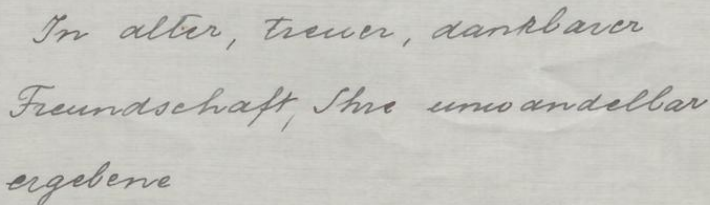 In alter, treuer, dankbarer
Freundschaft, Ihre unwandelbar
ergebene